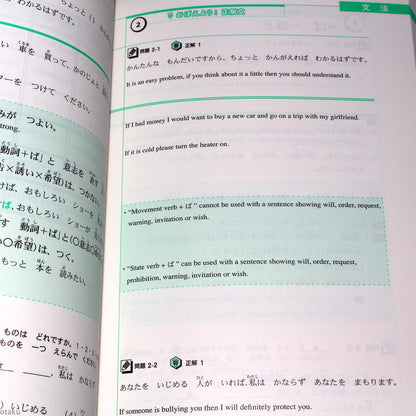 車を買って、かのじょと
ターを つけて ください。
みが つよい。
trong.
動詞+ば」と 意志を 表す
告×誘い×希望)は、つかない。
けば、おもしろい ショーを
ば、おもしろい ショーが
す 動詞+ば」と(○意志○
い○希望)は、つく。
もっと 本を 読みたい。
ものは どれですか。1・2・3
ものを 一つ えらんで くだ
私は かなら
文法
2
おぼえよう! 正解文
問題 2-1 正解 1
かんたんな もんだいですから、ちょっと かんがえれば わかるはずです。
It is an easy problem, if you think about it a little then you should understand it.
If I had money I would want to buy a new car and go on a trip with my girlfriend.
If it is cold please turn the heater on.
・"Movement verb + ば" cannot be used with a sentence showing will, order, request,
warning, invitation or wish.
・"State verb + ば" can be used with a sentence showing will, order, request,
prohibition, warning, invitation or wish.
問題 2-2 正解 1
あなたを いじめる 人が いれば、私は かならず あなたを まもります。
If someone is bullying you then I will definitely protect you.